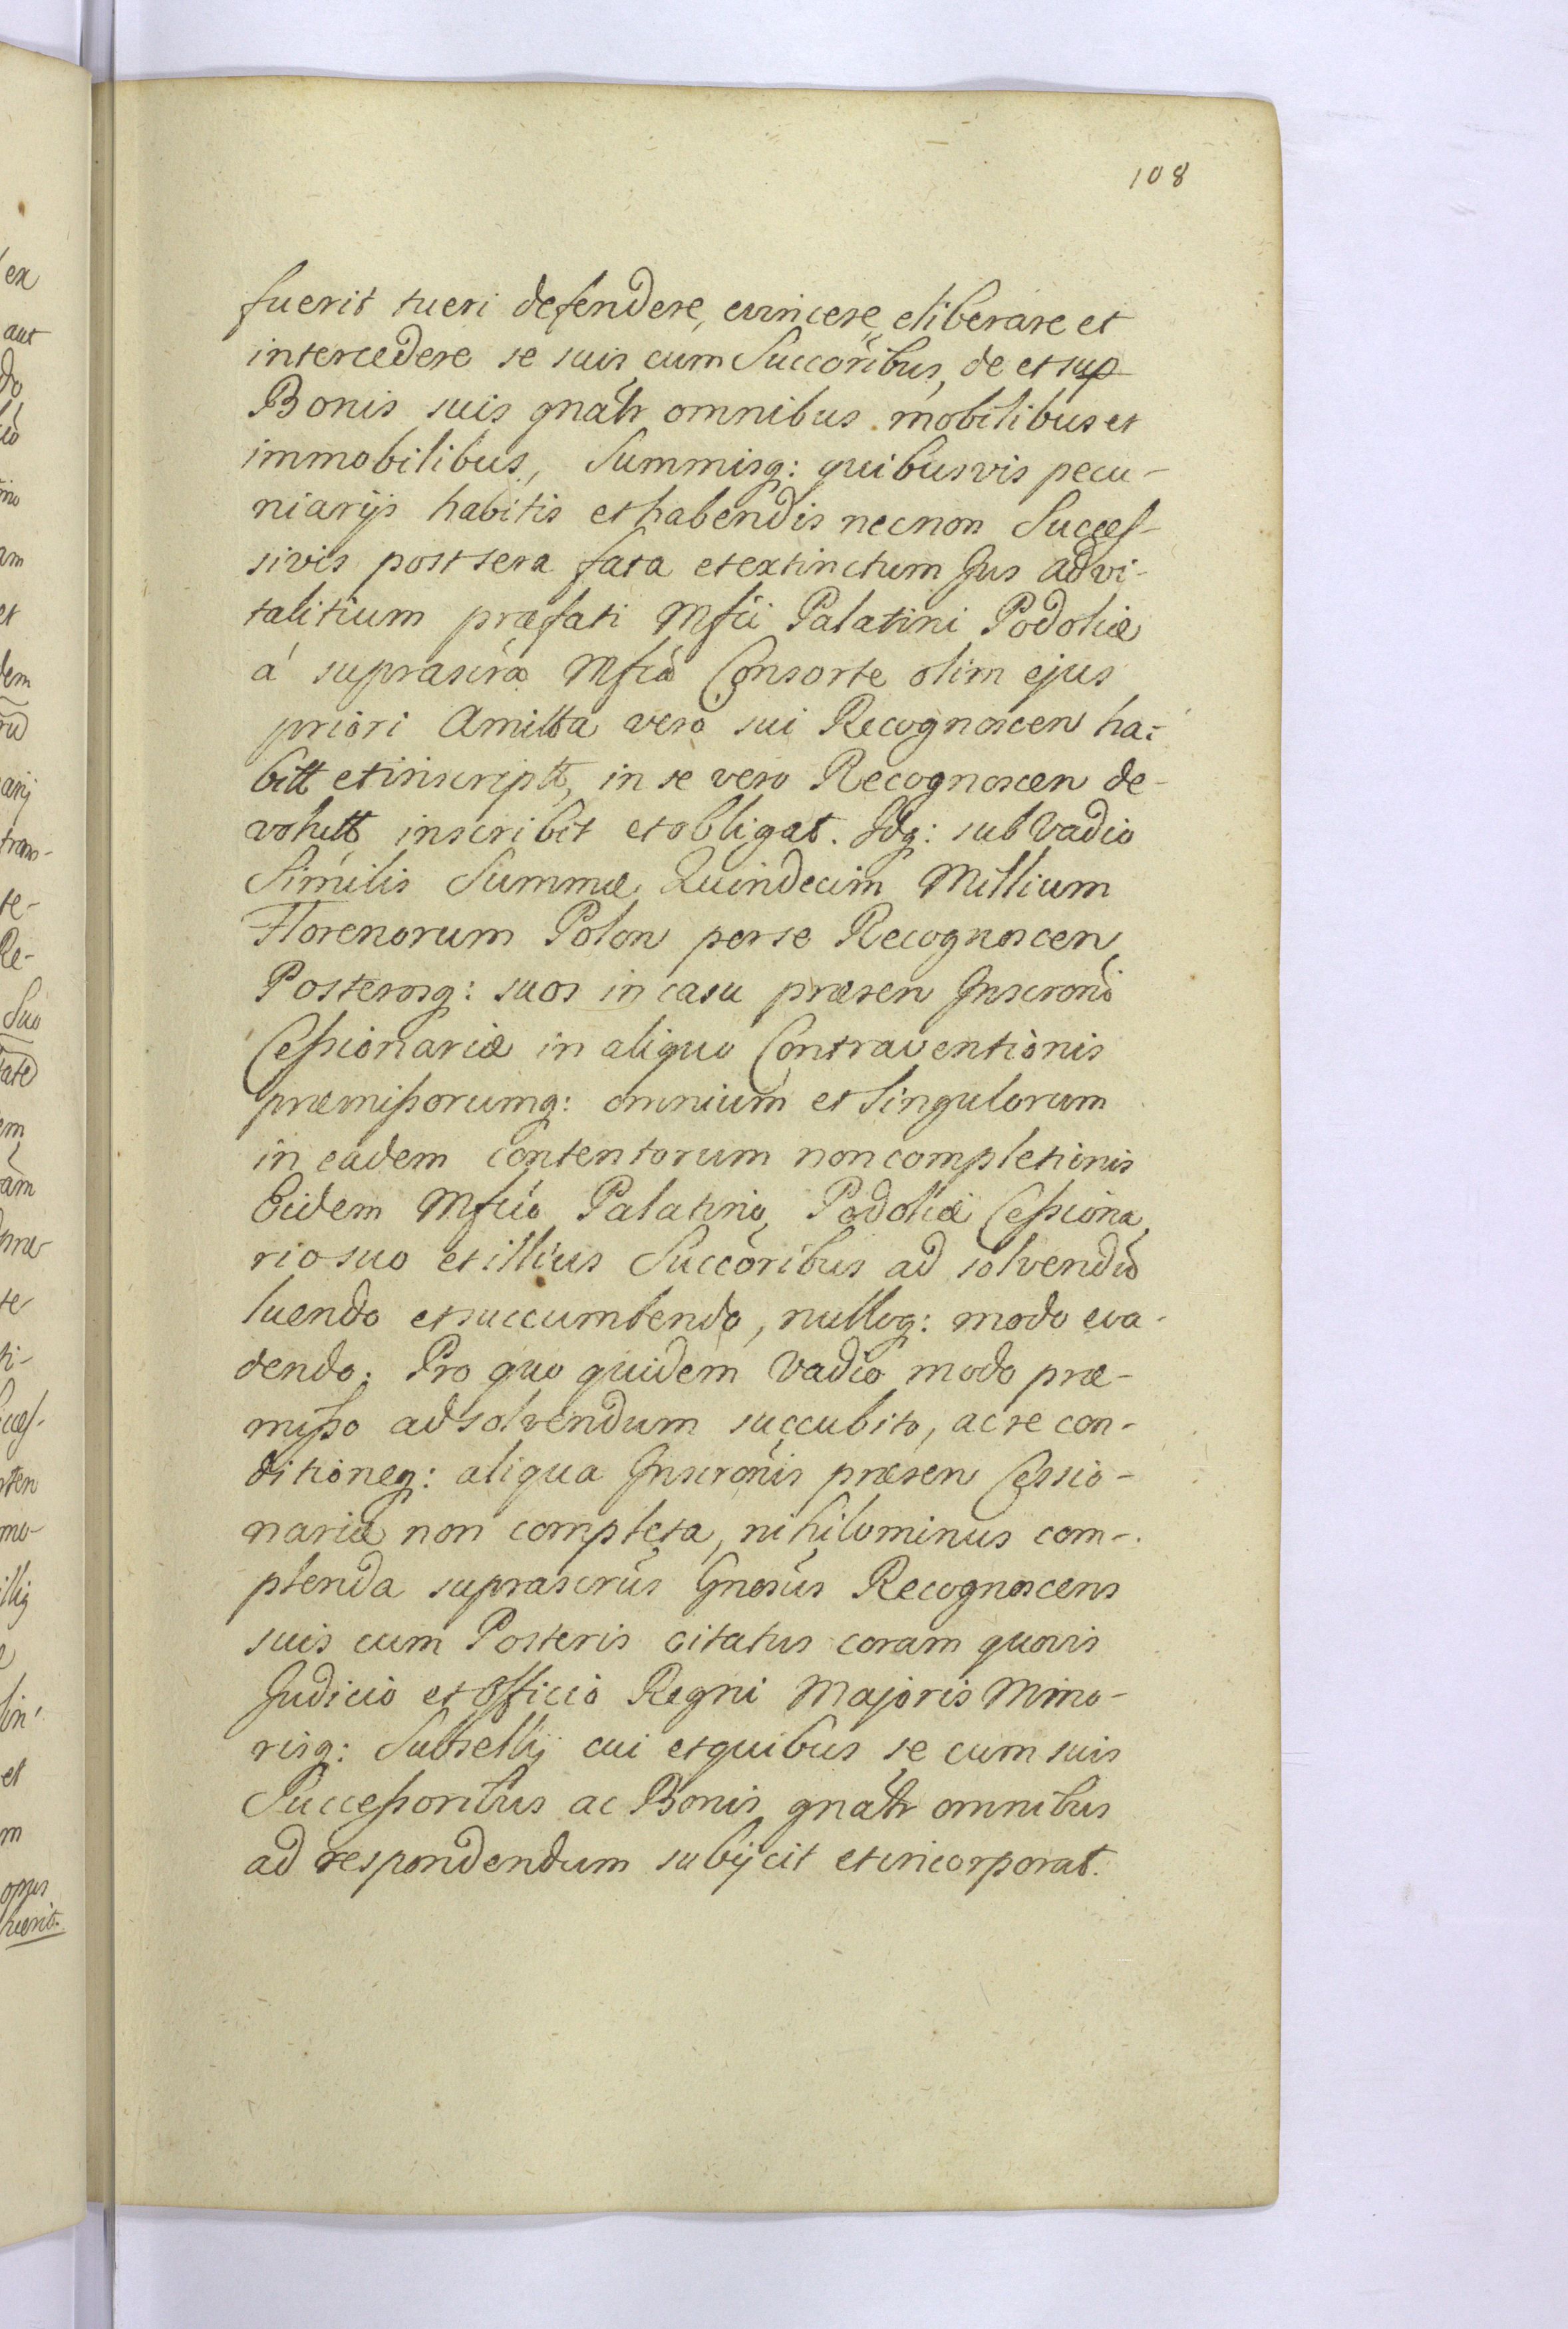 108
fuerit tueri defendere, evincere, eliberare et
intercedere se suis cum Succoribus, de et sup
Bonis suis gnatr omnibus mobilibus et
immobilibus, Summisq: quibusvis pecu-
niarijs habitis et habendis necnon Succes-
sivis post sera fata et extinctum Jus advi-
talitium præfati Mfci Palatini Podoliæ
á suprascra Mfca Consorte olim ejus
priori Amitta vero sui Recognoscen ha-
bitt et inscriptt, in se vero Recognoscen de-
volutt inscribit et obligat. Idq: sub Vadio
Similis Summæ Quindecim Millium
Florenorum Polon per se Recognoscen
Posterosq: suos in casu præsen Inscronis
Cessionariæ in aliquo Contraventionis
præmissorumq: omnium et Singulorum
in eadem contentorum non completionis
Eidem Mfco Palatino Podoliæ Cessiona
rio suo et illius Succoribus ad solvendo
luendo et succumbendo, nulloq: modo eva-
dendo. Pro quo quidem Vadio modo præ-
misso ad solvendum succubito, ac re con-
ditioneq: aliqua Inscronis præsen Cessio-
nariæ non completa, nihilominus com-
plenda suprascrus Gnosus Recognoscens
suis cum Posteris citatus coram quovis
Judicio et Officio Regni Majoris Mino-
risq: Subsellij cui et quibus se cum suis
Successoribus ac Bonis gnatr omnibus
ad respondendum subijcit et incorporat.